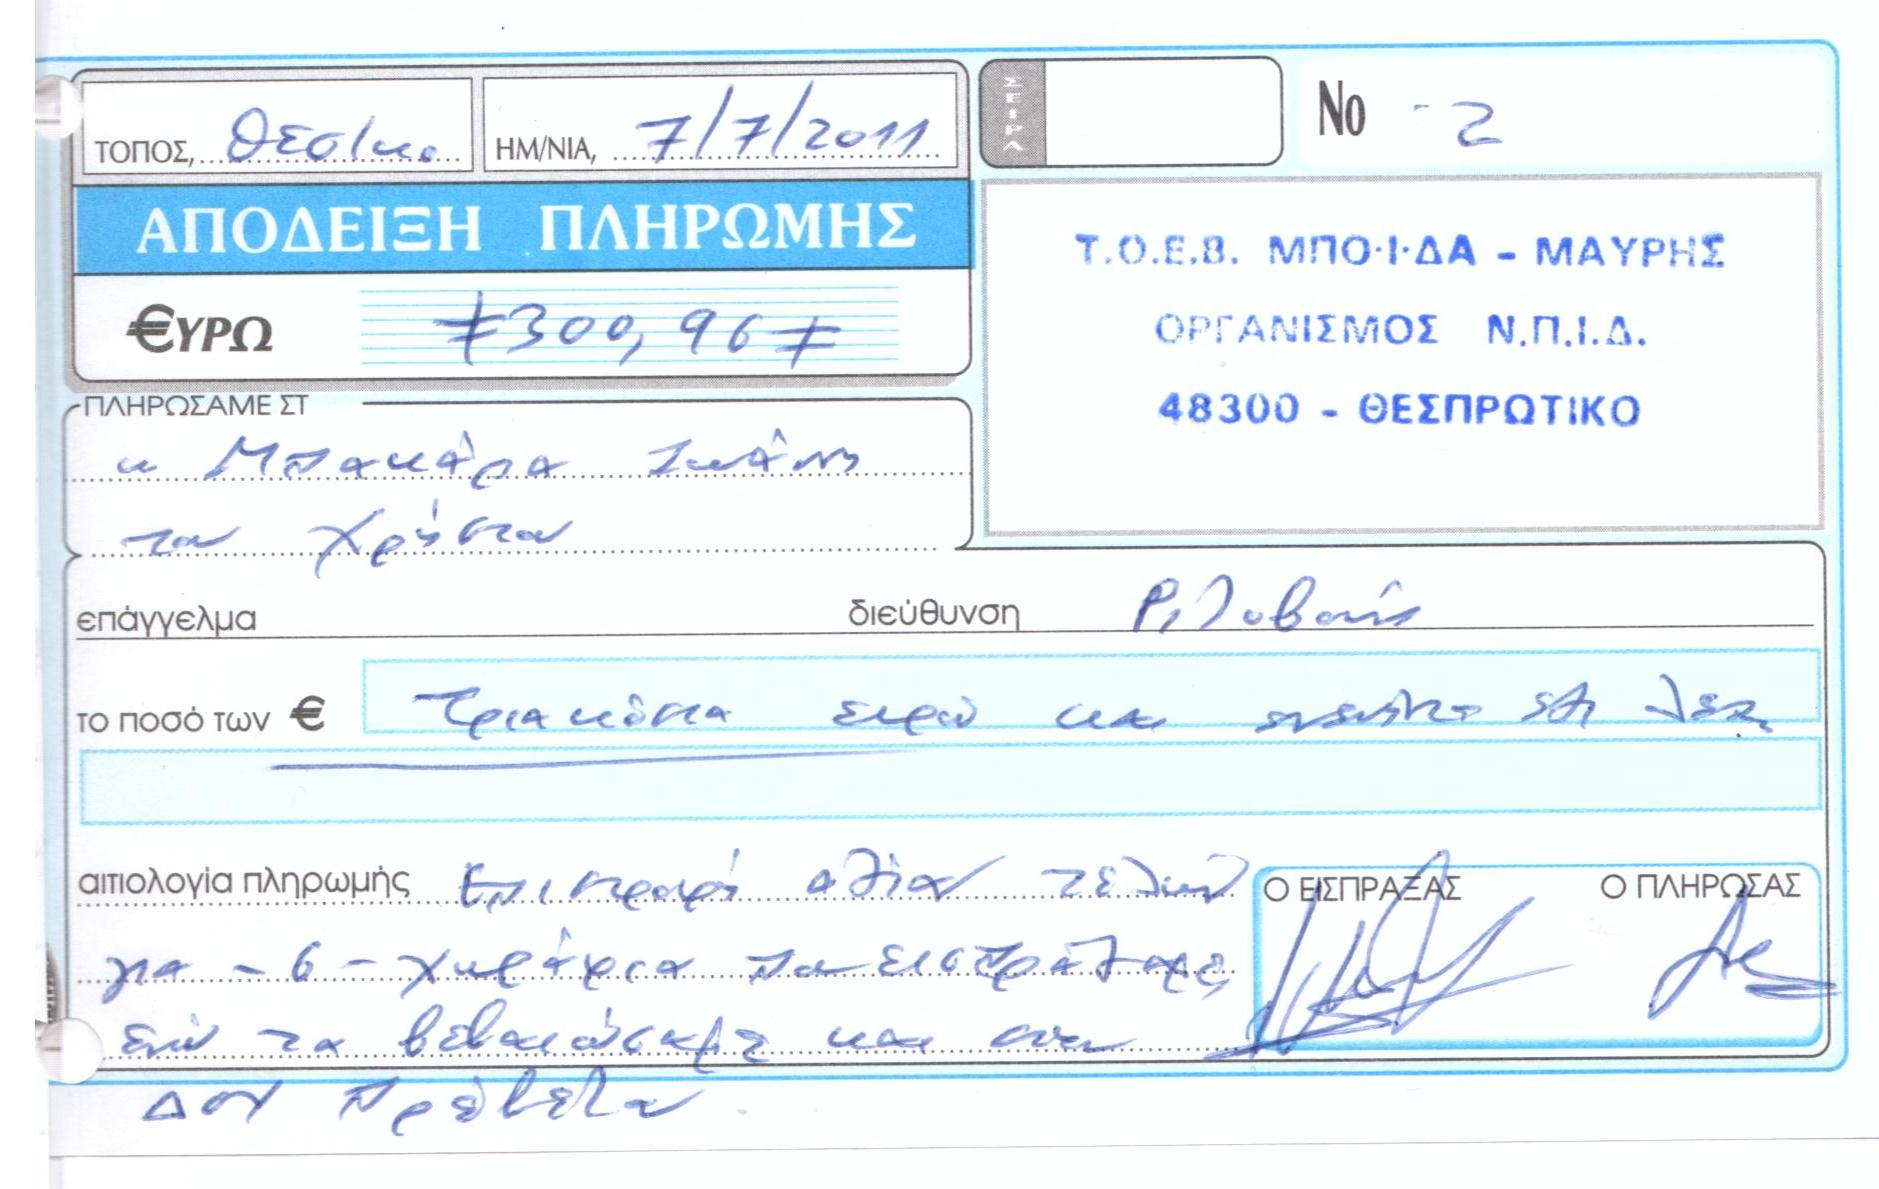 ΤΟΠΟΣ, Θεσ/κο
ΗΜ/ΝΙΑ, 7/7/2011
ΣΕΙΡΑ
Νο -2
ΑΠΟΔΕΙΞΗ ΠΛΗΡΩΜΗΣ
Τ.Ο.Ε.Β. ΜΠΟ·Ι·ΔΑ - ΜΑΥΡΗΣ
ΟΡΓΑΝΙΣΜΟΣ Ν.Π.Ι.Δ.
48300 - ΘΕΣΠΡΩΤΙΚΟ
€ΥΡΩ ≠300,96≠
ΠΛΗΡΩΣΑΜΕ ΣΤ
κ Μπακάρα
του Χρήστου
επάγγελμα
διεύθυνση Ριζοβούνι
το ποσό των € Τριακόσια ευρώ και ενενήντα έξι λεπτ
αιτιολογία πληρωμής Επιστροφή αξίαν τελών
για - 6 - χωράφια που εισπράξαμε
ενώ τα βεβαιώσαμε και στη
ΔΟΥ Πρέβεζα
Ο ΕΙΣΠΡΑΞΑΣ
Ο ΠΛΗΡΩΣΑΣ